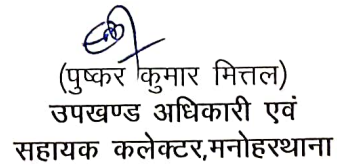 (पुष्कर कुमार मित्तल)
उपखण्ड अधिकारी एवं
सहायक कलेक्टर,मनोहरथाना